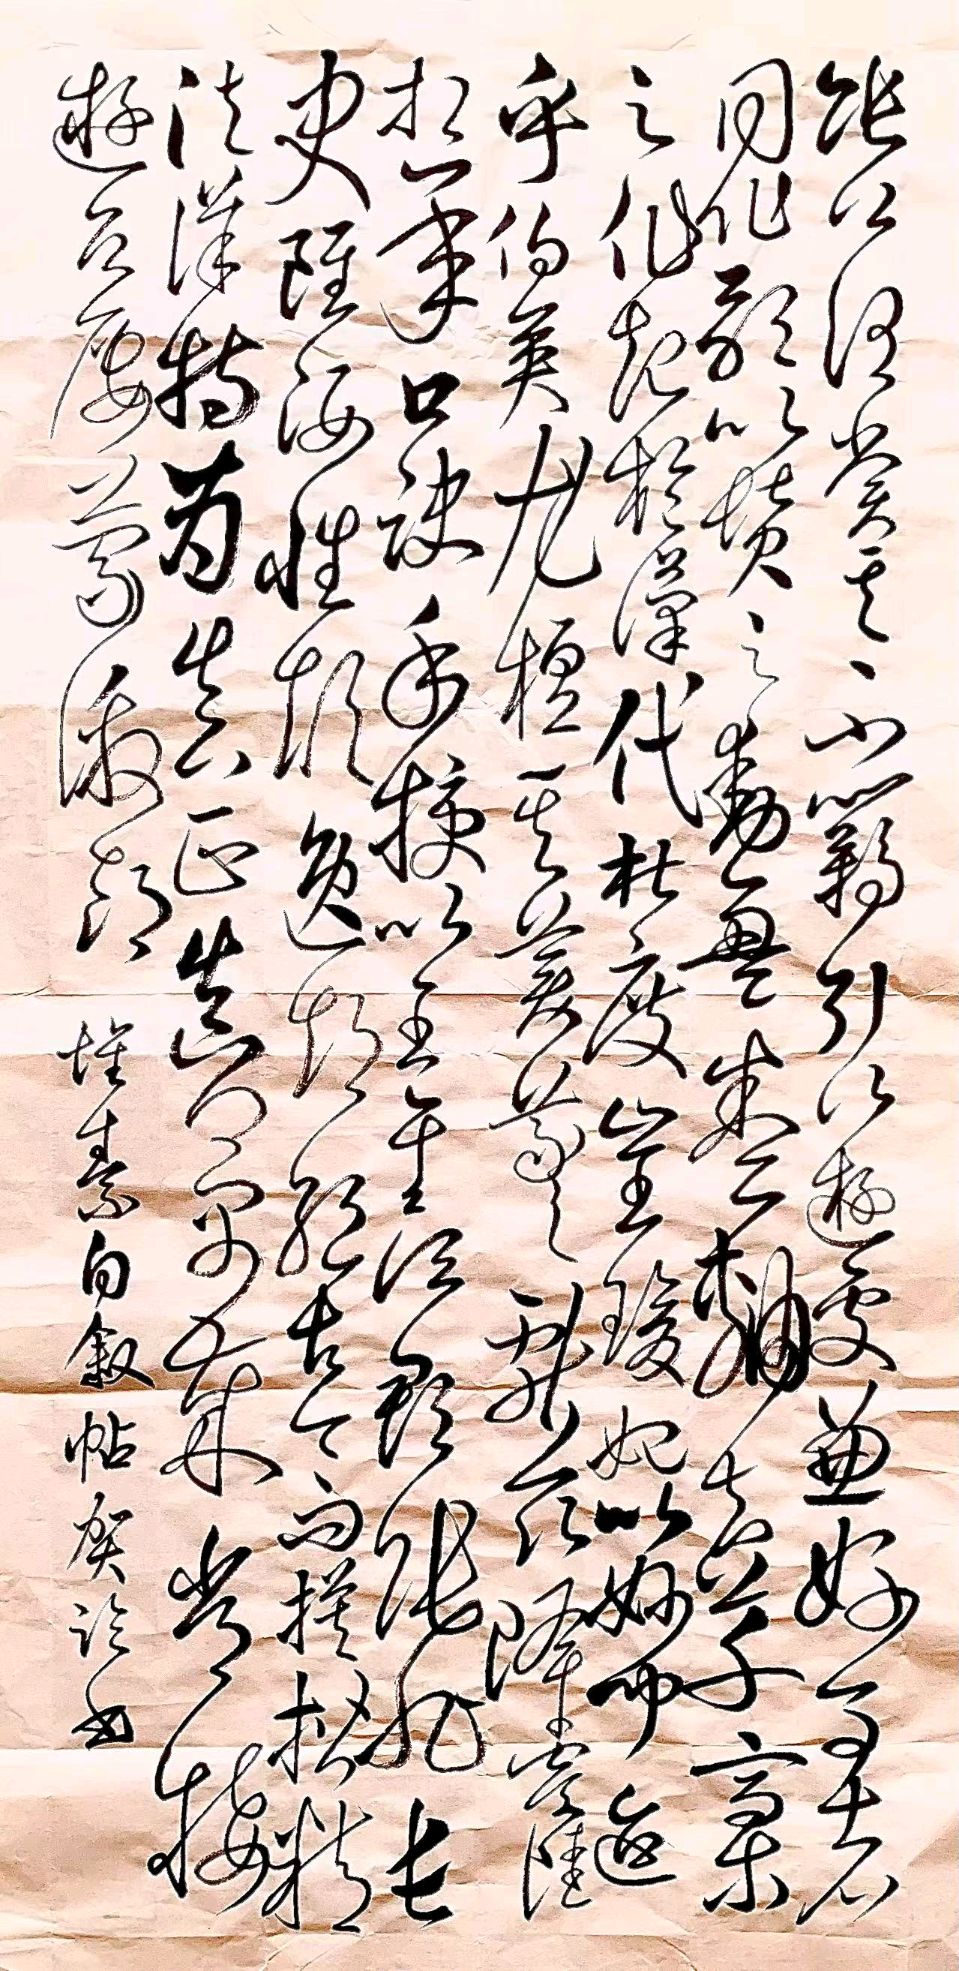 張公謂賞其不羈引以遊處兼好事者
同作歌以贊之動盈卷軸夫草稾
之作起於漢代杜度崔瑗始以妙聞迨
乎伯英尤擅其美羲獻茲降虞陸
相承口訣手授以至吳郡張旭長
史雖姿性顛逸超絕古今而模楷精
法詳特為真正真卿早歲常接
遊居屢蒙激昂 懷素自叙帖 書